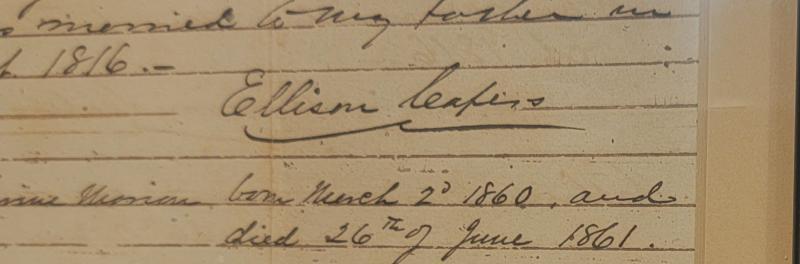 married to my father in
1816.-
Ellison Capers
Marion born March 2d 1860, and
died 26th of June 1861.